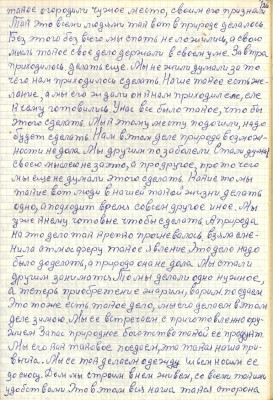 такое огородили чужое место, своим его признали
Так это всеми людьми так вот в природе делалось
Без этого без всего мы спать не ложились, а свою
мысль такое свое дело держали в своем уме. Завтра
приходилось делать еще. Мы не жили думали за то
чего нам приходилось сделать. Наше такое есть же-
лание, а мы его ждали он к нам приходил еле, еле
К нему готовились. У нас все было такое, что бы
этого сделать. Мы к этому месту подходили, надо
будет сделать. Нам в этом деле природа возмож-
ности не дала. Мы другим позаболели. Стали думать
своею мыслею не за это, а про другое, про то чего
мы еще не думали этого сделать. Какие то мы
такие вот люди в нашей такой жизни, делать
одно, а подходит время совсем другое иное. Мы
уже к нему готовые чтобы сделать. А природа
на это дело так крепко прогневалось, взяла изме-
нила атмосферу такое явление. Это дело надо
было доделать, а природа она не дала. Мы стали
другим заниматься. То мы делали одно нужное,
а теперь приобретение жарим, варим, поедаем
Это тоже есть такое дело, мы его делаем в этом
деле зимою. Мы ее встречаем с приготовленно ору-
жием. Запас природное богатство такой ее продукт.
Мы его как таковое поедаем, это такая наша при-
вычка. Мы се так делаем одежду шьем носим ее
до сносу. Дом мы строим в нем живем, со всеми такими
удобствами. Это в этом вся наша такая сторона